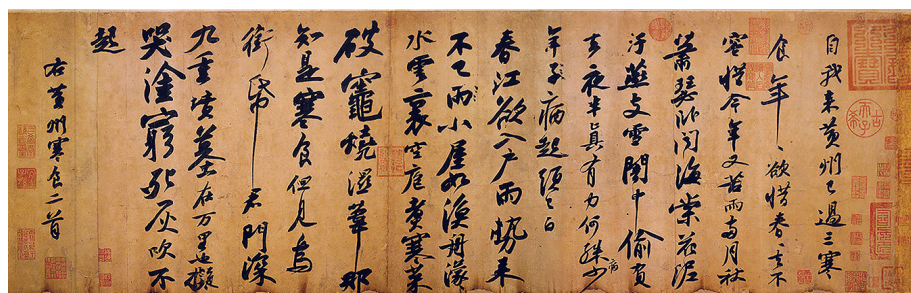 自我來黃州已過三寒
食年々欲惜春々去不
容惜今年又苦雨兩月秋
蕭瑟臥聞海棠花泥
汙燕支雪闇中偷負
去夜半真有力何殊少
病
年子病起頭已白
春江欲入戶雨勢來
不已雨小屋如漁舟濛々
水雲裏空庖煮寒菜
破竈燒濕葦那
知是寒食但見烏
銜帋君門深
九重墳墓在万里也擬
哭塗窮死灰吹不
起
右黃州寒食二首
古希天子